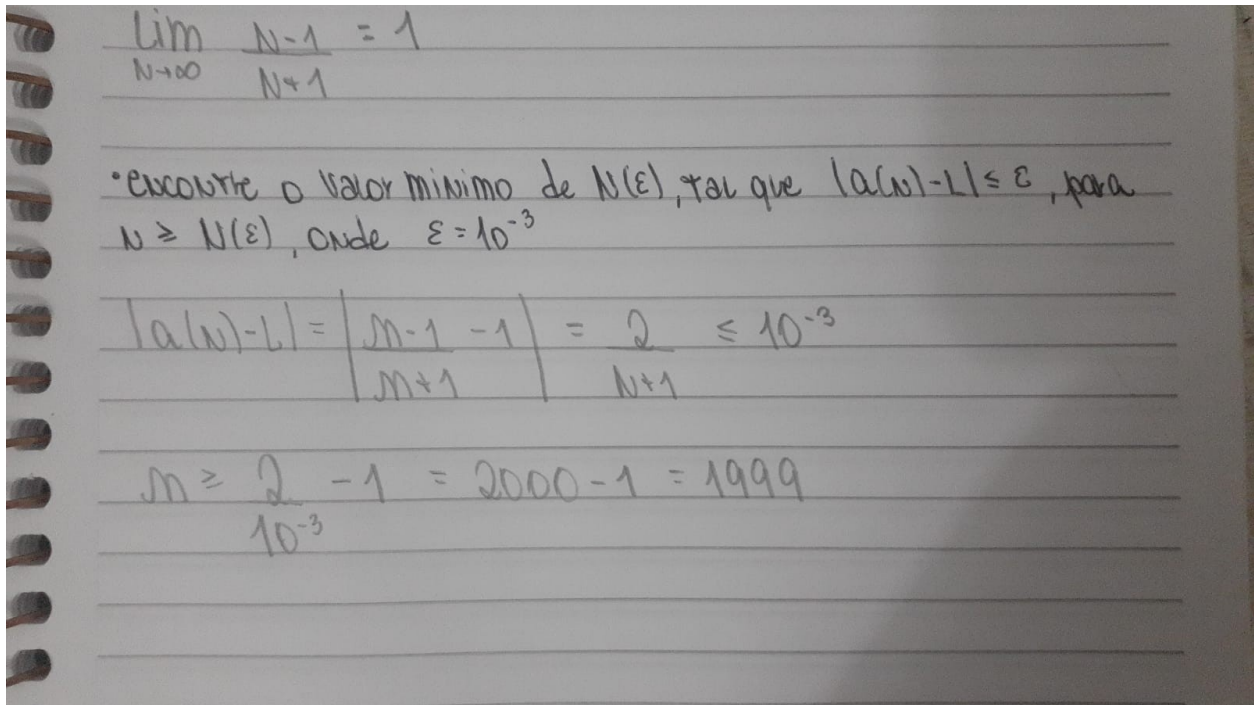 Lim N-1 = 1
N→∞ N+1
• encontre o valor minimo de N(ε), tal que |a(N)-L| ≤ ε, para
N ≥ N(ε), onde ε = 10⁻³
|a(N)-L| = | m-1 -1 | = 2 ≤ 10⁻³
m+1 N+1
m ≥ 2 -1 = 2000-1 = 1999
10⁻³